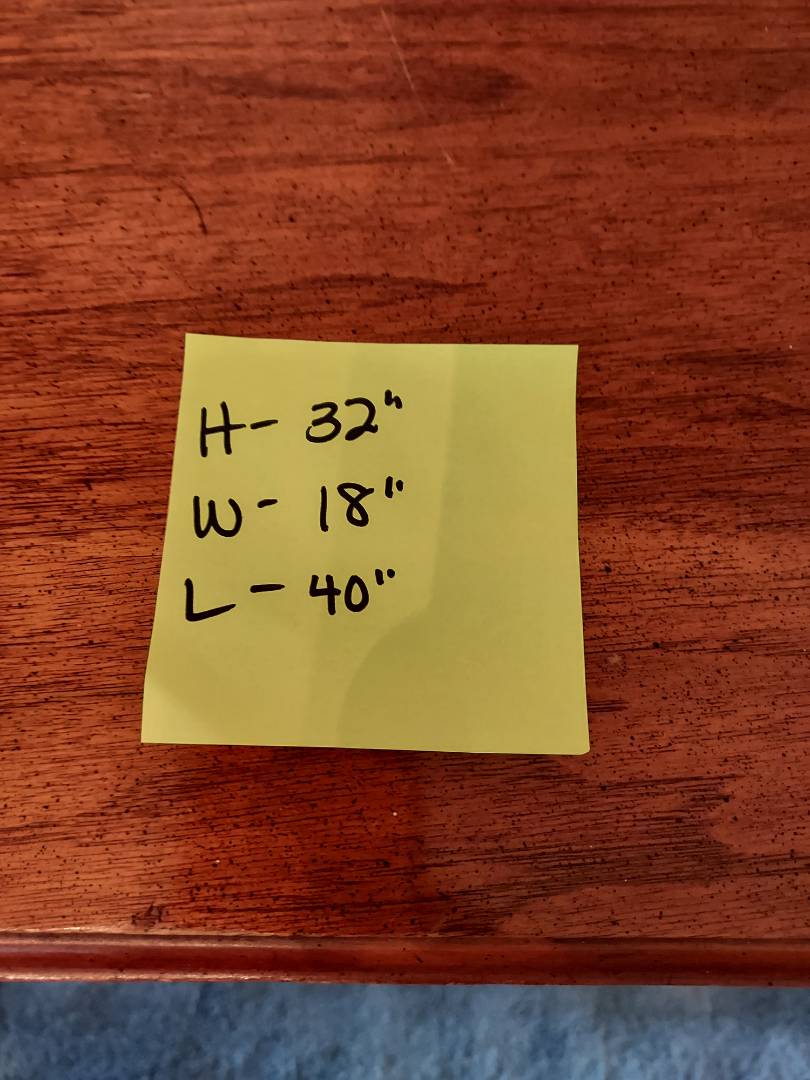 H- 32"
W- 18"
L- 40"